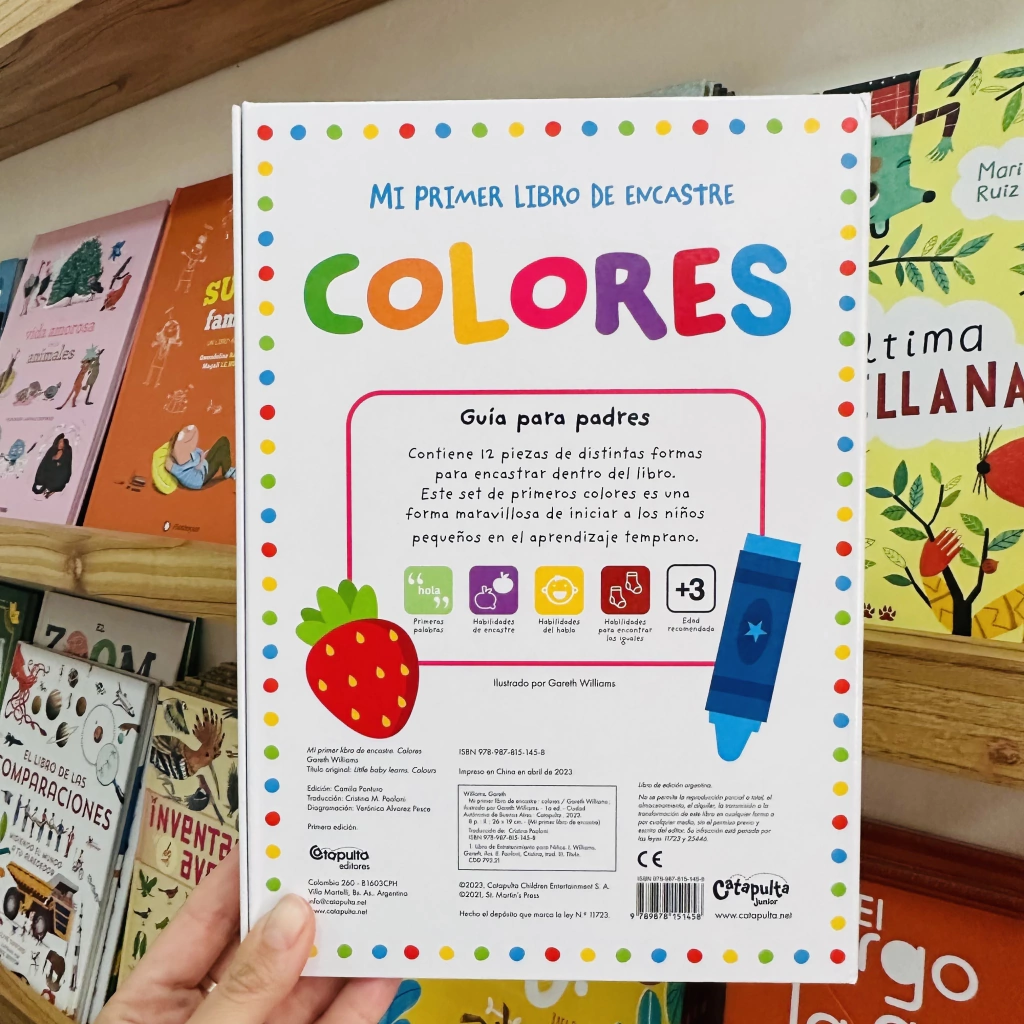 MI PRIMER LIBRO DE ENCASTRE
COLORES
Guía para padres
Contiene 12 piezas de distintas formas
para encastrar dentro del libro.
Este set de primeros colores es una
forma maravillosa de iniciar a los niños
pequeños en el aprendizaje temprano.
“ hola ”
+3
Primeras
palabras
Habilidades
de encastre
Habilidades
del habla
Habilidades
para encontrar
los iguales
Edad
recomendada
Ilustrado por Gareth Williams
Mi primer libro de encastre. Colores
Gareth Williams
Título original: Little baby learns. Colours
Edición: Camila Ponturo
Traducción: Cristina M. Paoloni
Diagramación: Verónica Alvarez Pesce
Primera edición.
Catapulta
editores
Colombia 260 - B1603CPH
Villa Martelli, Bs. As., Argentina
info@catapulta.net
www.catapulta.net
ISBN 978-987-815-145-8
Impreso en China en abril de 2023
Williams, Gareth
Mi primer libro de encastre : colores / Gareth Williams ;
ilustrado por Gareth Williams. - 1a ed. - Ciudad
Autónoma de Buenos Aires : Catapulta, 2023.
8 p. : il. ; 26 x 19 cm. - (Mi primer libro de encastre)
Traducción de: Cristina Paoloni.
ISBN 978-987-815-145-8
1. Libro de Entretenimiento para Niños. I. Williams,
Gareth, ilus. II. Paoloni, Cristina, trad. III. Título.
CDD 793.21
©2023, Catapulta Children Entertainment S. A.
©2021, St. Martin's Press
Hecho el depósito que marca la ley N.º 11723.
Libro de edición argentina.
No se permite la reproducción parcial o total, el
almacenamiento, el alquiler, la transmisión o la
transformación de este libro en cualquier forma o
por cualquier medio, sin el permiso previo y
escrito del editor. Su infracción está penada por
las leyes 11723 y 25446.
CE
ISBN 978-987-815-145-8
9 789878 151458
Catapulta
junior
www.catapulta.net
vida amorosa
animales
SU
fam
EL
ZOOM
EL LIBRO DE LAS
COMPARACIONES
INVENTA
AVE
Mari
Ruiz
ltima
ELLANA
El
rgo